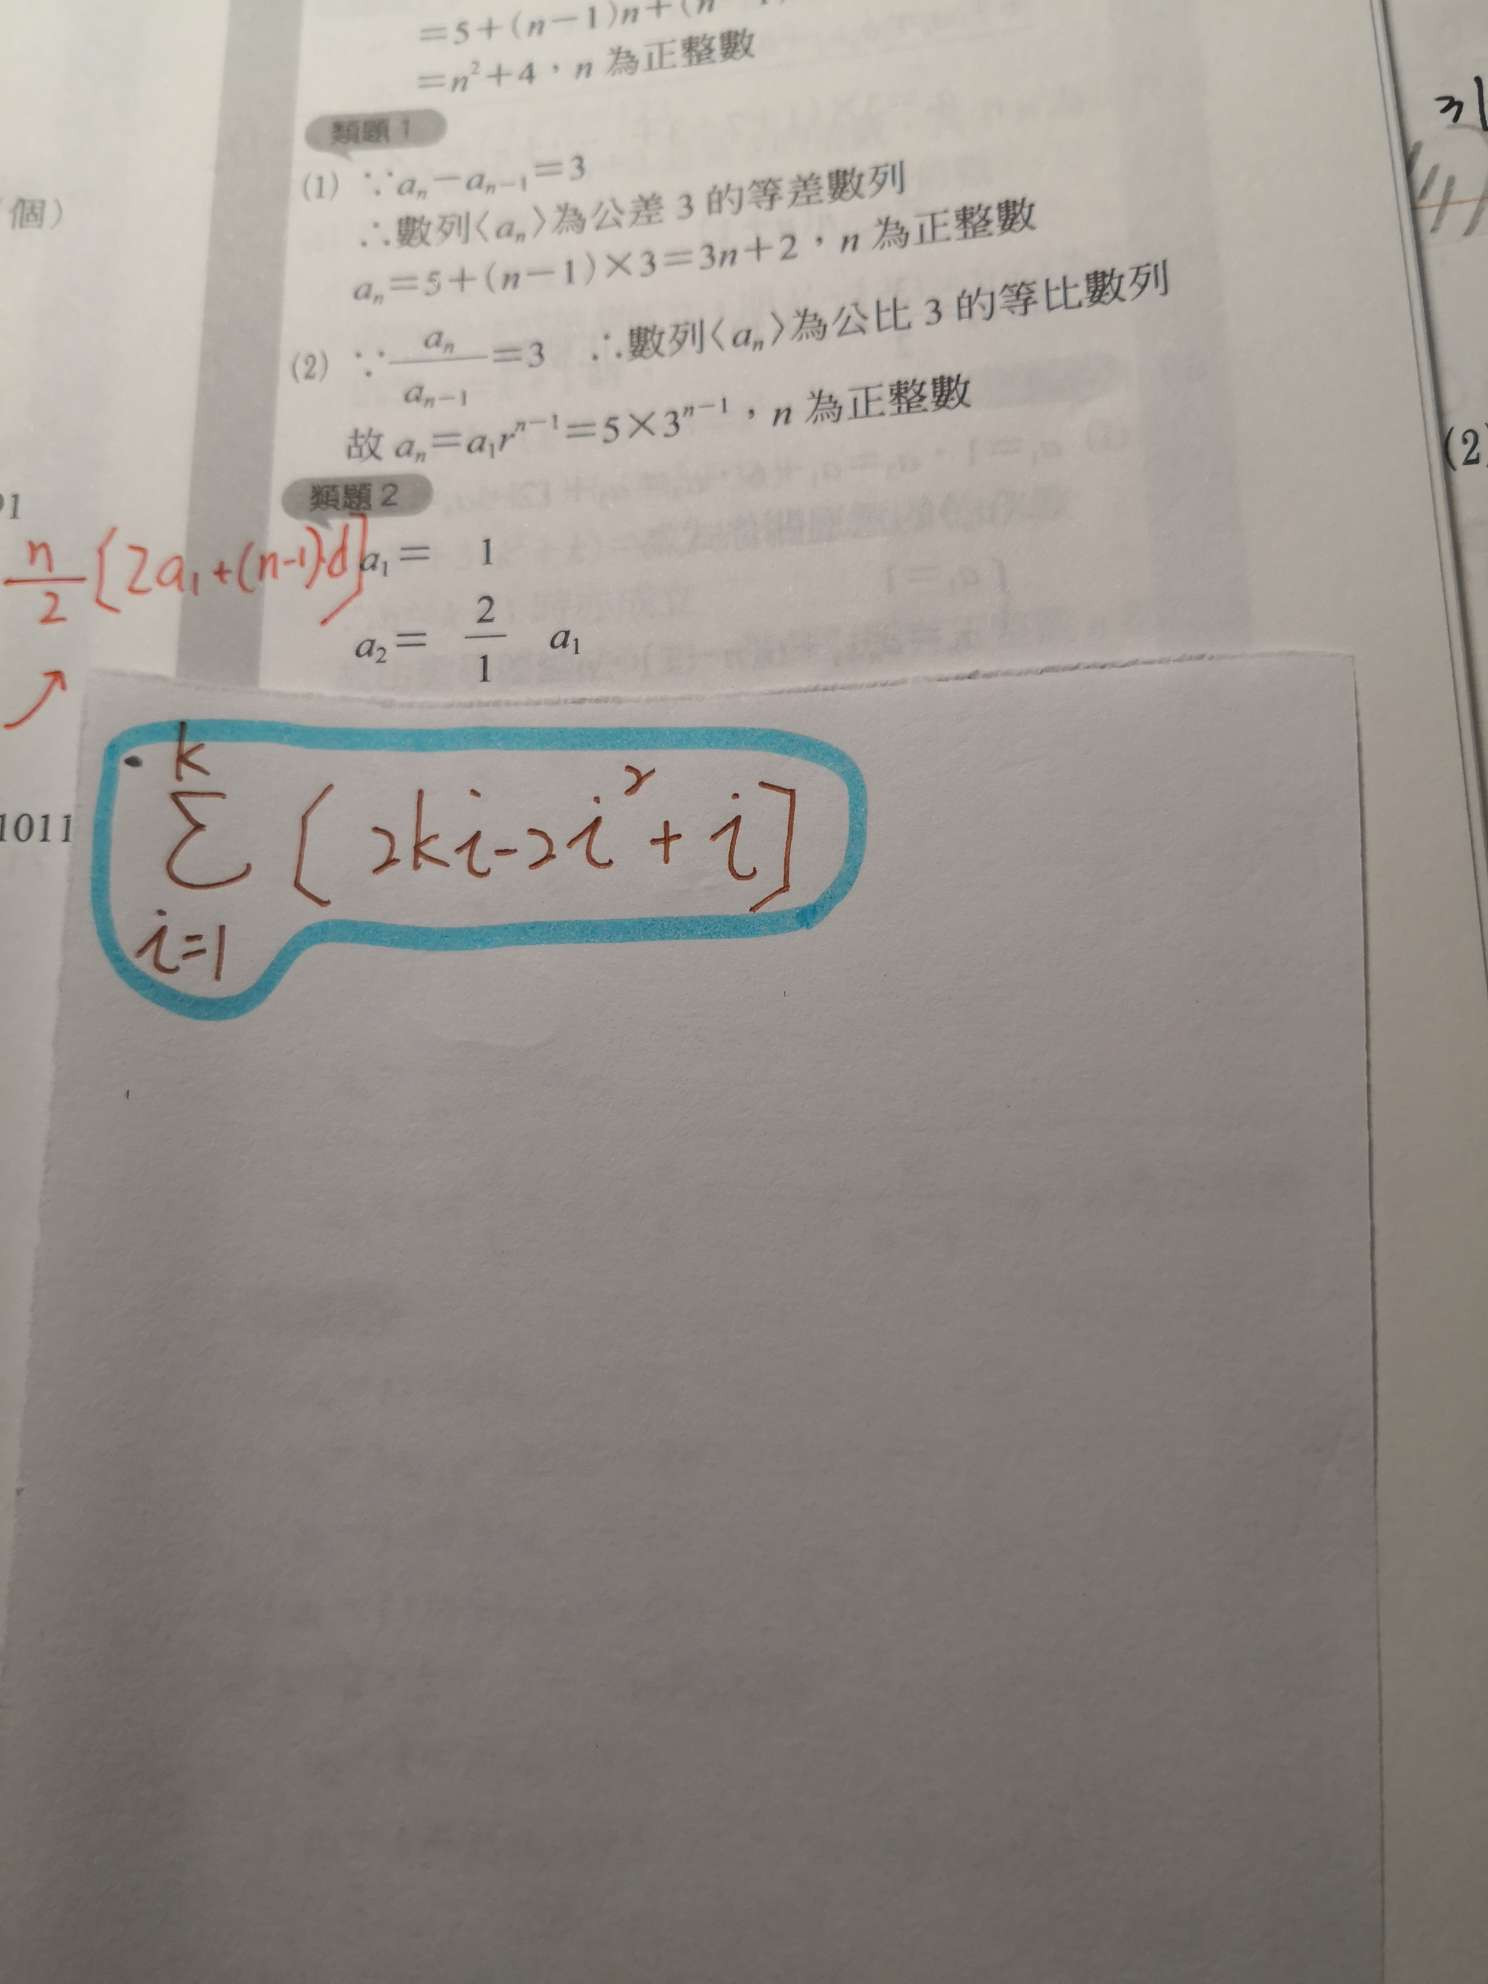 =5+(n−1)n+(n
=n²+4，n 為正整數
類題 1
(1) ∵aₙ−aₙ₋₁=3
∴數列〈aₙ〉為公差 3 的等差數列
aₙ=5+(n−1)×3=3n+2，n 為正整數
(2) ∵aₙ/aₙ₋₁=3 ∴數列〈aₙ〉為公比 3 的等比數列
故 aₙ=a₁rⁿ⁻¹=5×3ⁿ⁻¹，n 為正整數
類題 2
a₁= 1
a₂= 2/1 a₁
個）
91
n/2 [2a₁+(n-1)·d]
1011
k
Σ [2ki-2i²+i]
i=1
31
(2)